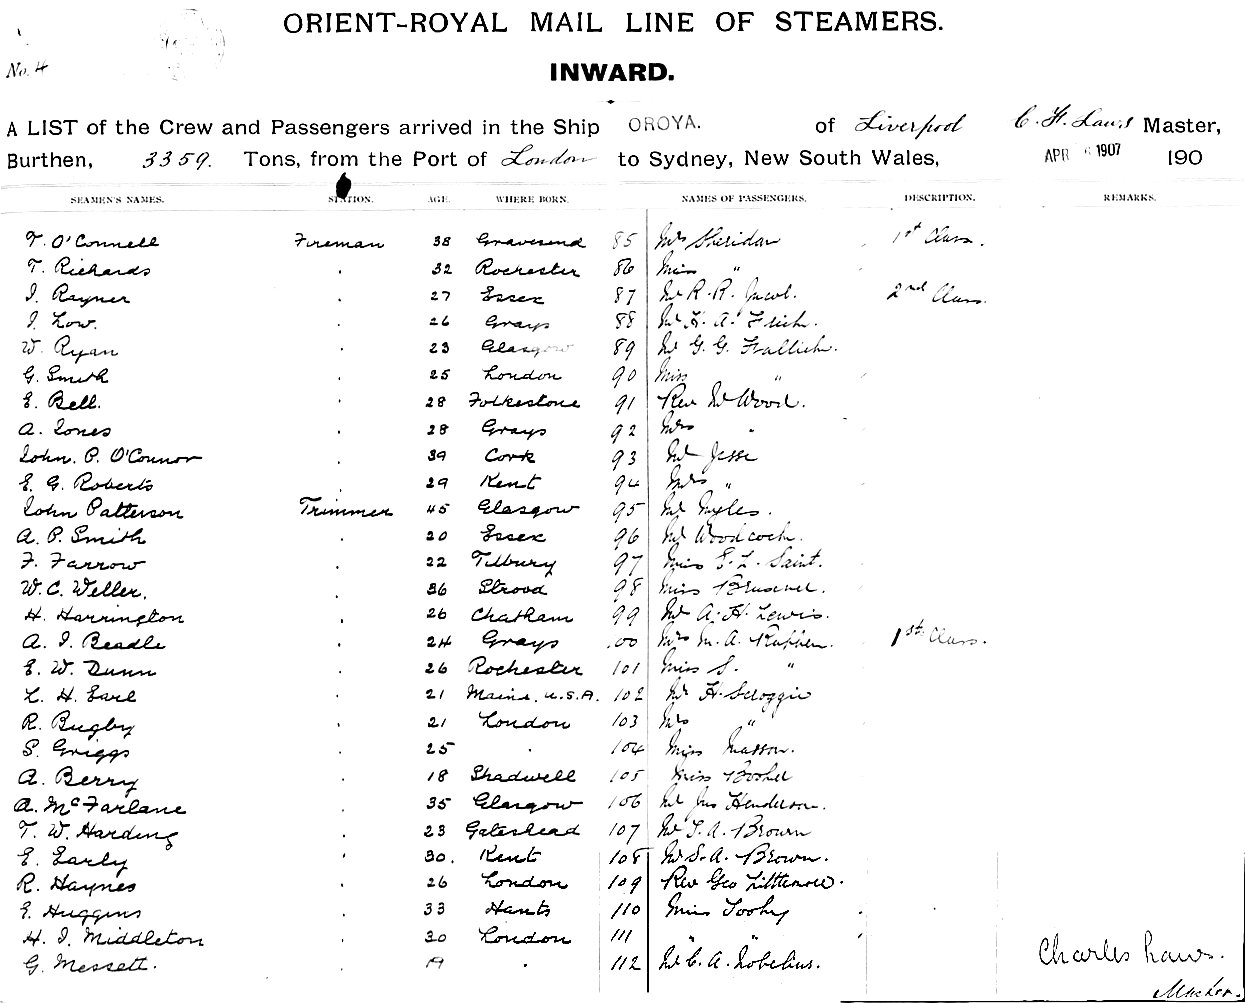 ORIENT-ROYAL MAIL LINE OF STEAMERS.
No. 4
INWARD.
A LIST of the Crew and Passengers arrived in the Ship OROYA. of Liverpool C. F. Laws Master,
Burthen, 3359. Tons, from the Port of London to Sydney, New South Wales, APR 1907 190
SEAMEN'S NAMES. STATION. AGE. WHERE BORN. NAMES OF PASSENGERS. DESCRIPTION. REMARKS.
T. O'Connell Fireman 38 Gravesend 85 Mrs Sheridan 1st Class.
T. Richards . 32 Rochester 86 Miss "
J. Rayner . 27 Essex 87 Mr R. R. Jacob. 2nd Class.
J. Low. . 26 Grays 88 Mr H. A.
W. Ryan . 23 Glasgow 89 Mr G. G.
G. Smith . 25 London 90 Miss "
E. Bell. . 28 Folkestone 91 Rev Mr Wood.
A. Jones . 28 Grays 92 Mrs "
John. P. O'Connor . 39 Cork 93 Mr Jesse
E. G. Roberts . 29 Kent 94 Mrs "
John Patterson Trimmer 45 Glasgow 95 Mr Myles.
A. P. Smith . 20 Essex 96 Mr Woodcock.
F. Farrow . 22 Tilbury 97 Miss E. L. Saint.
W. C. Weller. . 36 Strood 98 Miss
H. Harrington . 26 Chatham 99 Mr A. H. Lewis.
A. J. Beadle . 24 Grays 100 Mrs M. A. 1st Class.
E. W. Dunn . 26 Rochester 101 Miss S. "
L. H. Earl . 21 Maine, U.S.A. 102 Mr H. Scroggie
R. Bugby . 21 London 103 Mrs "
S. Griggs . 25 . 104 Miss Masson.
A. Berry . 18 Shadwell 105 Miss
A. McFarlane . 35 Glasgow 106 Mr Jno Henderson.
T. W. Harding . 23 Gateshead 107 Mr T. A. Brown
E. Early . 30. Kent 108 Mr S. A. Brown.
R. Haynes . 26 London 109 Rev Geo
E. Huggins . 33 Hants 110 Miss Toohy
H. J. Middleton . 30 London 111 " "
G. Messett. . 19 . 112 Mr C. A. Nobelius.
Charles Laws.
Master.